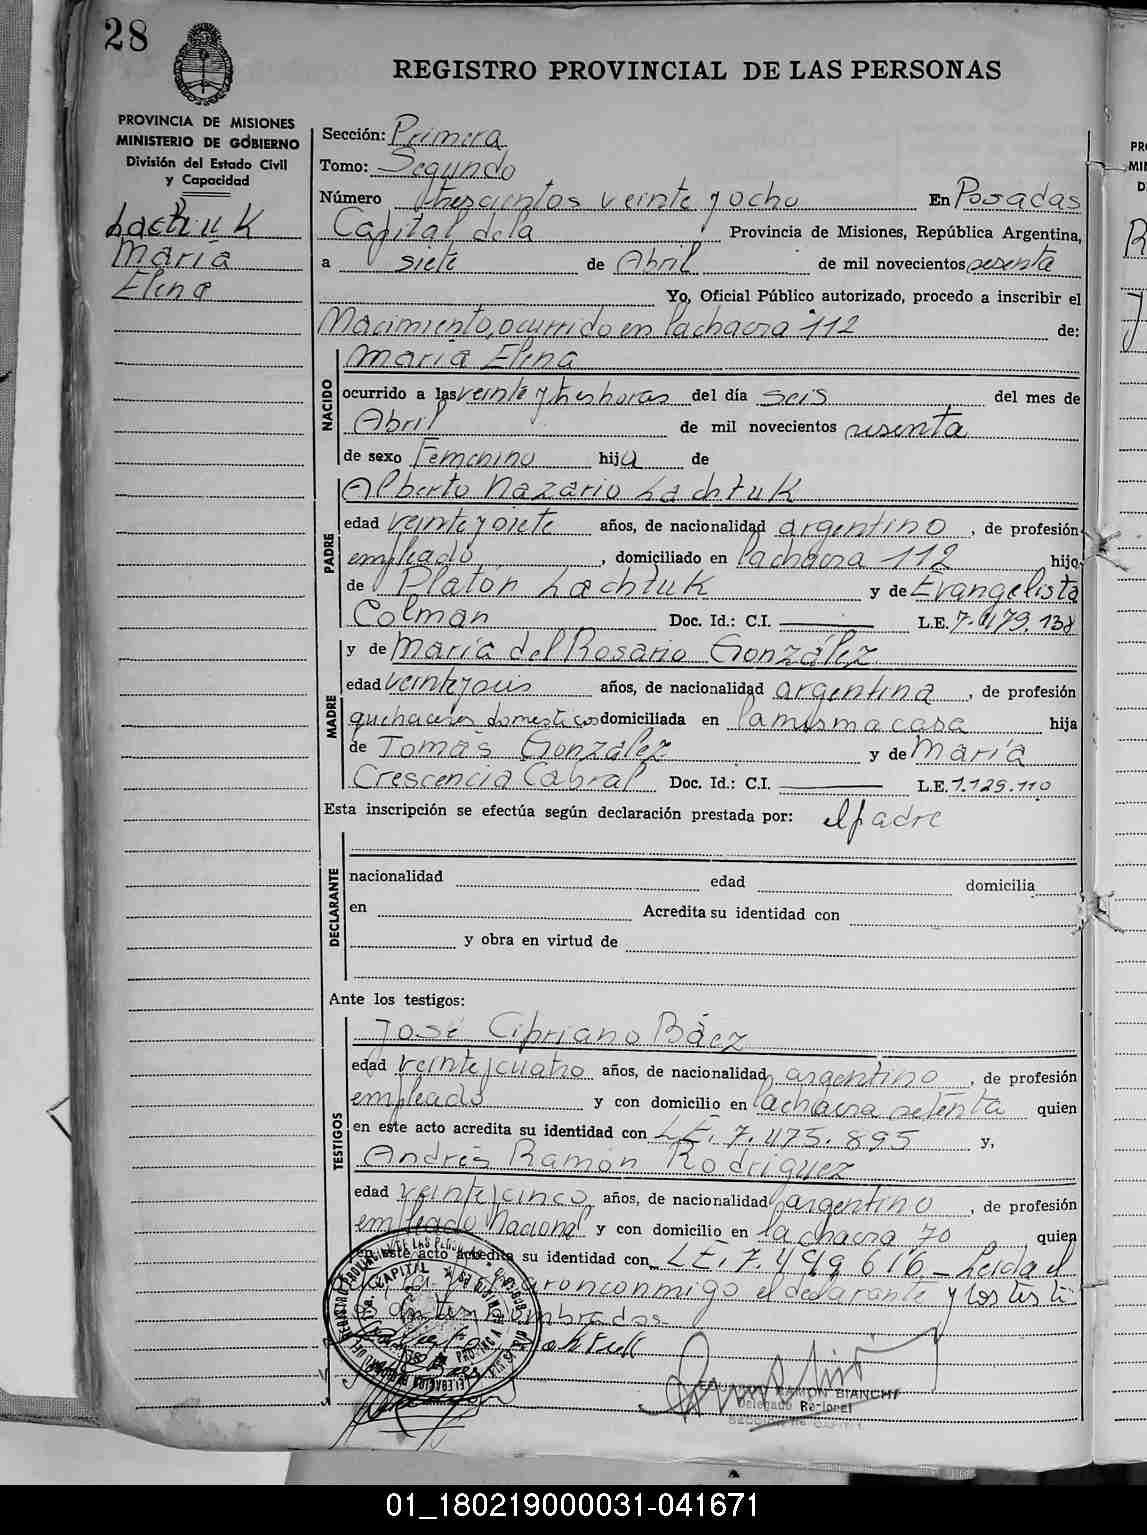 28
REGISTRO PROVINCIAL DE LAS PERSONAS
PROVINCIA DE MISIONES
MINISTERIO DE GOBIERNO
División del Estado Civil
y Capacidad
Lachtuk
María
Elena
Sección: Primera
Tomo: Segundo
Número trescientos veinte y ocho En Posadas
Capital de la Provincia de Misiones, República Argentina,
a siete de Abril de mil novecientos sesenta
Yo, Oficial Público autorizado, procedo a inscribir el
Nacimiento, ocurrido en la chacra 112 de:
NACIDO
María Elena
ocurrido a las veinte y tres horas del día seis del mes de
Abril de mil novecientos sesenta
de sexo Femenino hija de
PADRE
Alberto Nazario Lachtuk
edad veinte y siete años, de nacionalidad argentino, de profesión
empleado, domiciliado en la chacra 112 hijo
de Platón Lachtuk y de Evangelista
Colman Doc. Id.: C.I. L.E. 7.479.138
MADRE
y de María del Rosario González
edad veinte y seis años, de nacionalidad argentina, de profesión
quehaceres domesticos domiciliada en la misma casa hija
de Tomás González y de María
Crescencia Cabral Doc. Id.: C.I. L.E. 1.129.110
Esta inscripción se efectúa según declaración prestada por: el padre
DECLARANTE
nacionalidad edad domicilia
en Acredita su identidad con
y obra en virtud de
Ante los testigos:
TESTIGOS
José Cipriano Báez
edad veinte y cuatro años, de nacionalidad argentino, de profesión
empleado y con domicilio en la chacra setenta quien
en este acto acredita su identidad con L.E. 7.475.895 y,
Andrés Ramón Rodríguez
edad veinte y cinco años, de nacionalidad argentino, de profesión
empleado Nacional y con domicilio en la chacra 70 quien
en este acto acredita su identidad con L.E. 7.499.616 _ Leida el
conmigo el declarante y los testi
antes nombrados.
RAMON BIANCHI
Delegado
01_180219000031-041671